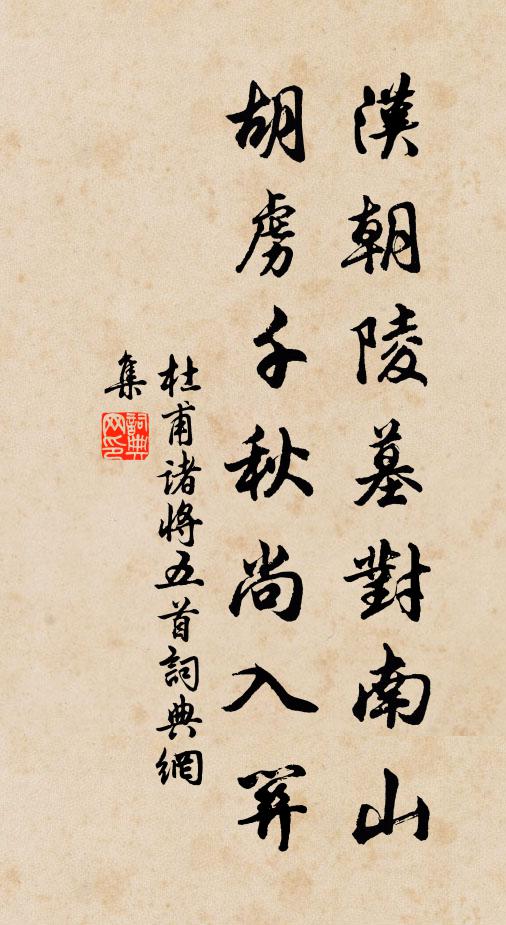 漢朝陵墓對南山
胡虜千秋尚入關
杜甫諸將五首詞典網
集
詞典網印